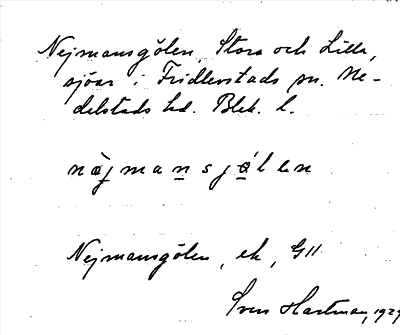 Nejmansgölen, Stora och Lilla,
sjöar i Fridlevstads sn. Me-
delstads hd. Blek. l.
nàjmansjǿlen
Nejmansgölen, ek, G11
Sven Hartman, 1929